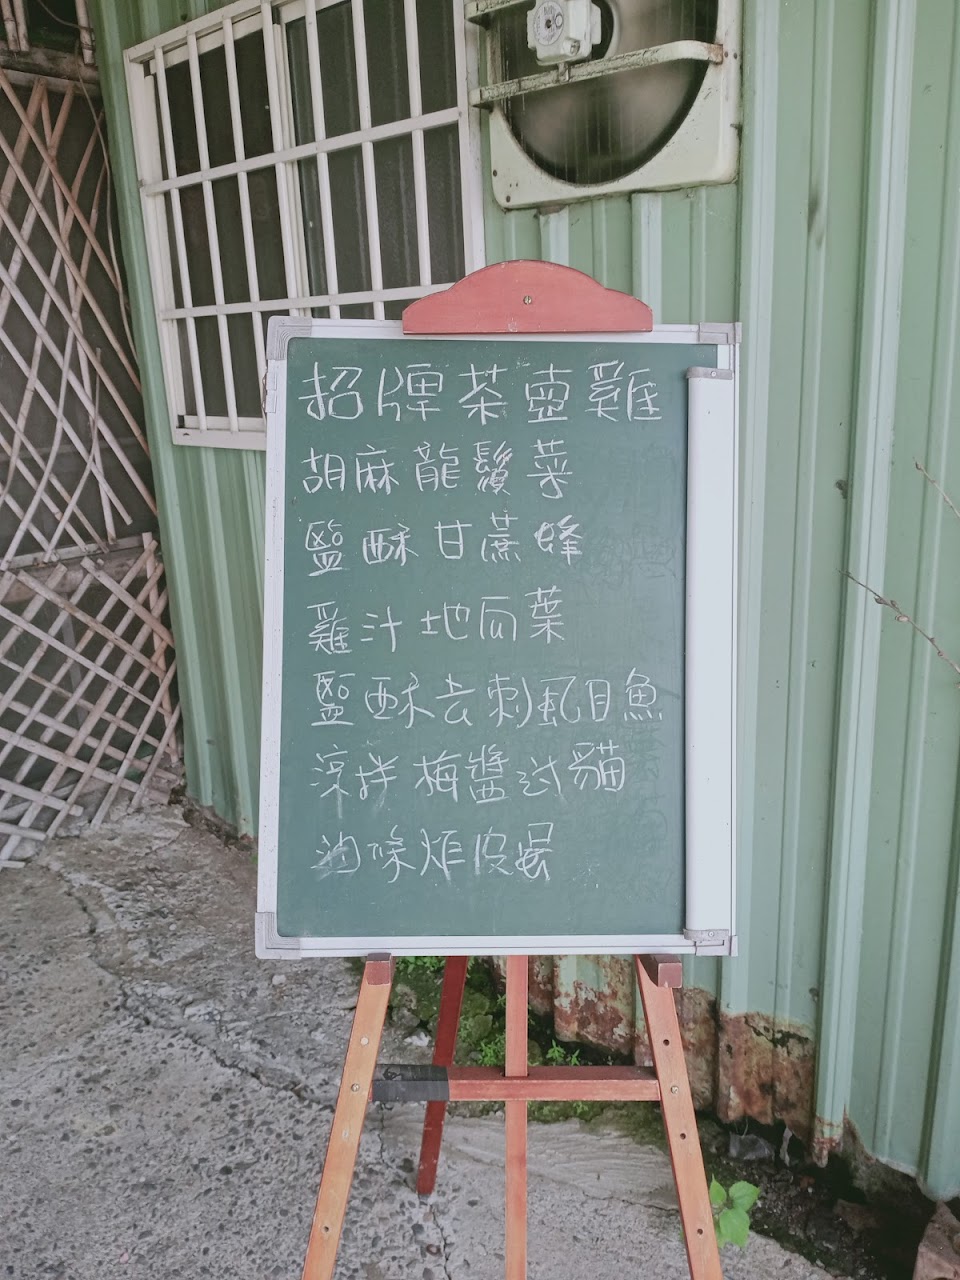 招牌茶壺雞
胡麻龍鬚菜
鹽酥甘蔗蜂
雞汁地瓜葉
鹽酥去刺虱目魚
涼拌梅醬过貓
油條炸皮蛋